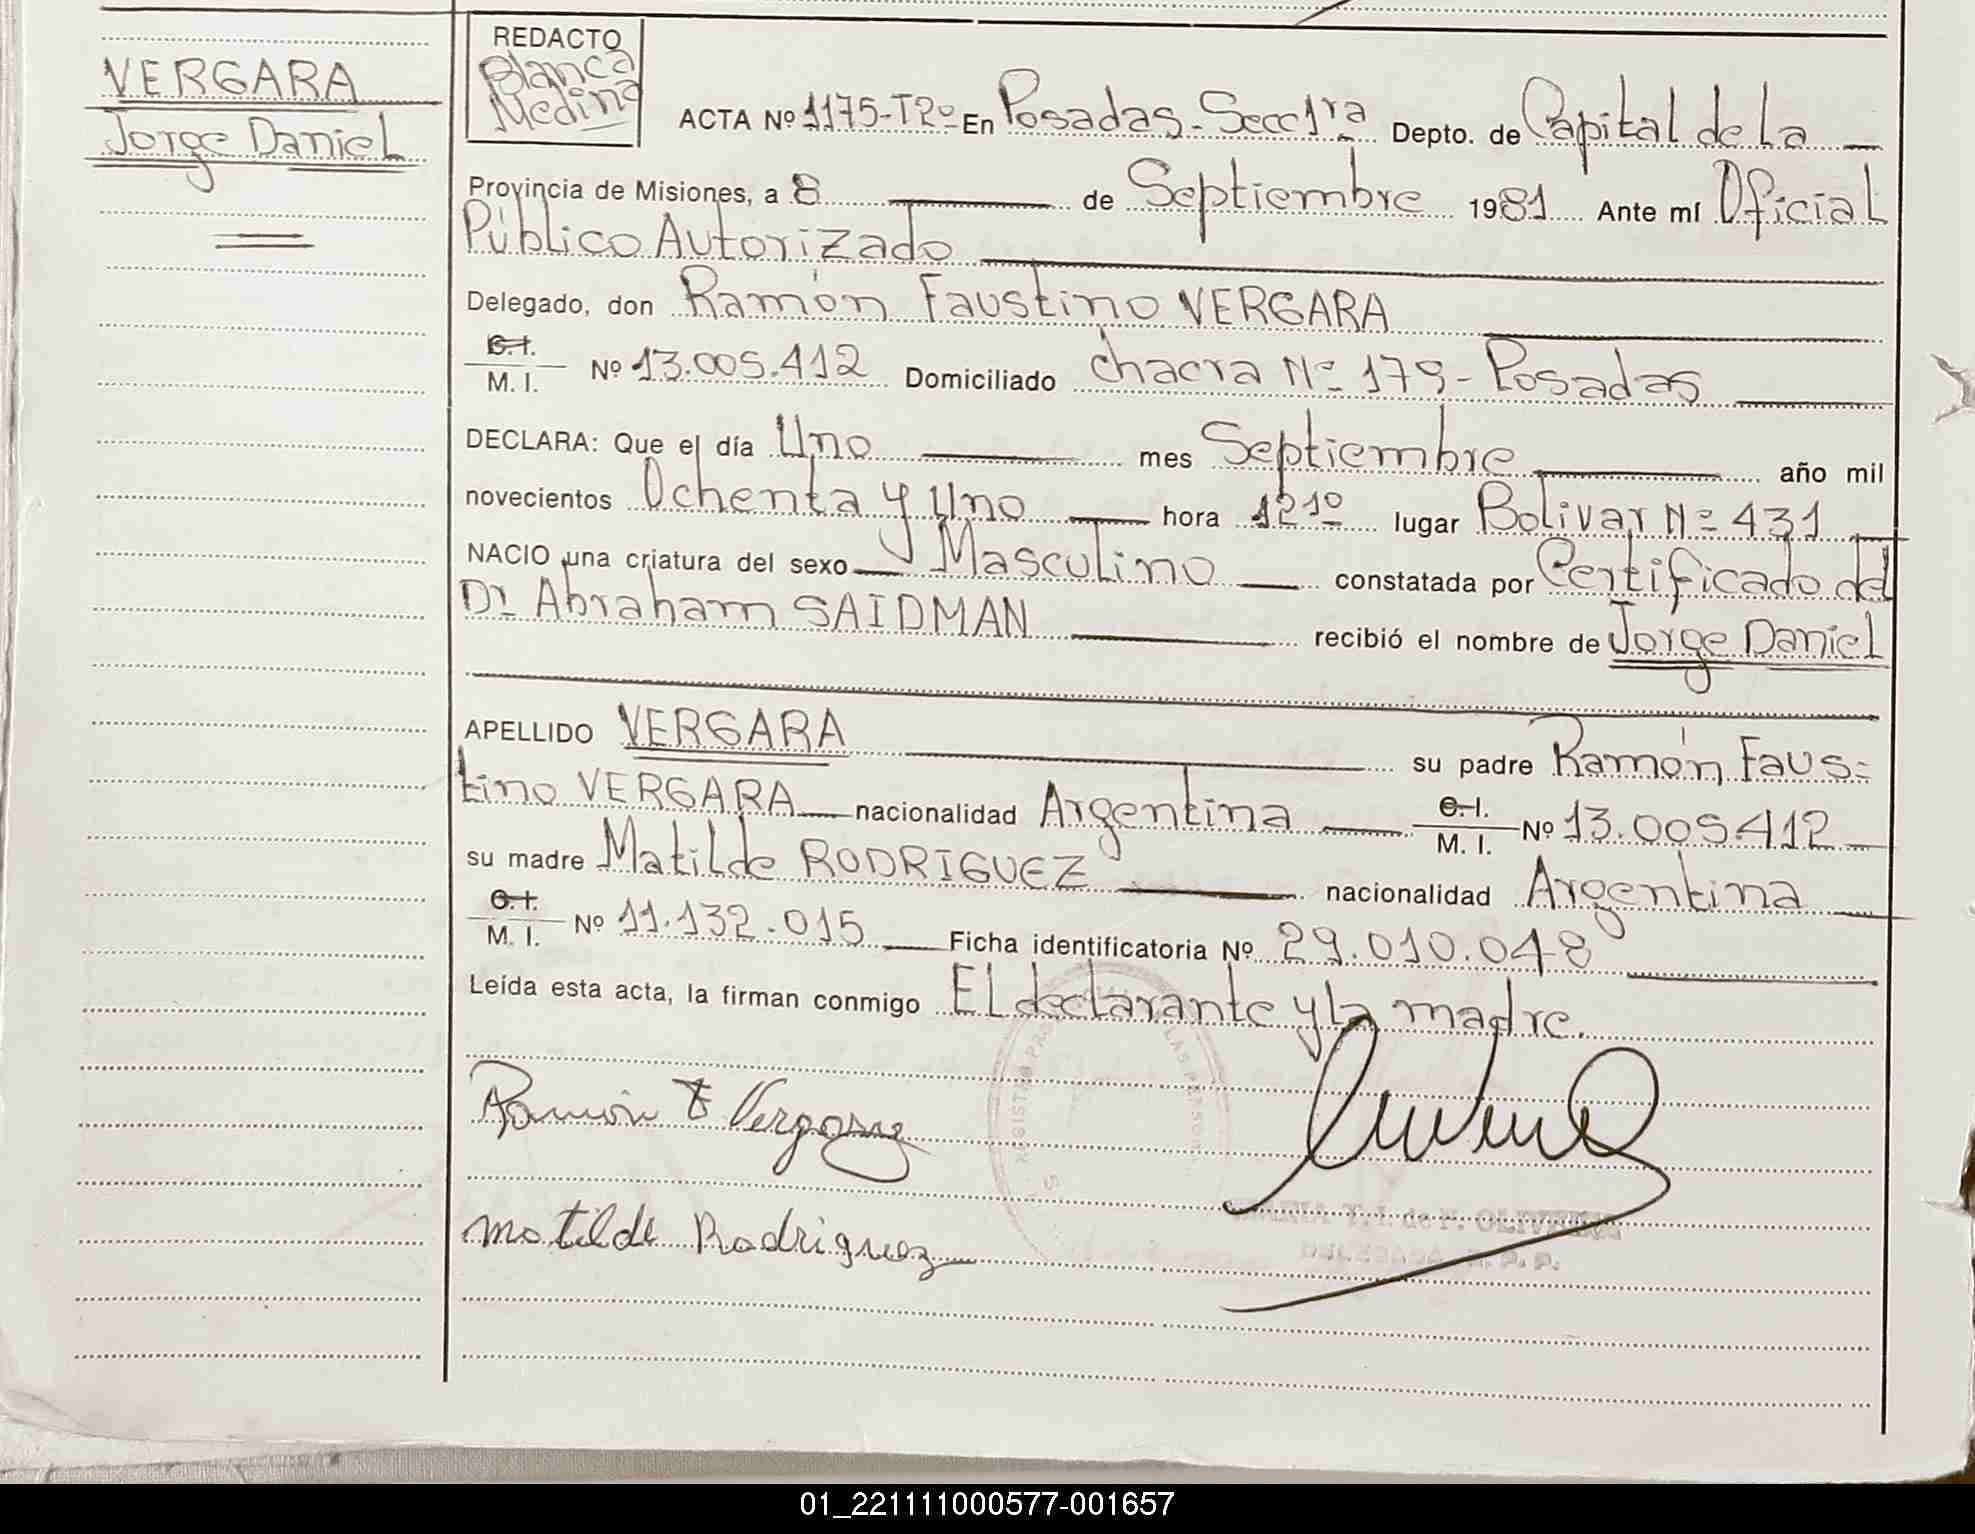 VERGARA
Jorge Daniel
REDACTO
Blanca
Medina
ACTA Nº 1175-T2º En Posadas-Secc 1ra Depto. de Capital de la
Provincia de Misiones, a 8 de Septiembre 1981 Ante mí Oficial
Público Autorizado
Delegado, don Ramón Faustino VERGARA
C.I.
M. I. Nº 13.005.412 Domiciliado chacra Nº 179-Posadas
DECLARA: Que el día Uno mes Septiembre año mil
novecientos Ochenta y Uno hora 12 10 lugar Bolivar Nº 431
NACIO una criatura del sexo Masculino constatada por Certificado del
Dr. Abraham SAIDMAN recibió el nombre de Jorge Daniel
APELLIDO VERGARA su padre Ramón Faus=
tino VERGARA nacionalidad Argentina C.I.
M. I. Nº 13.005.412
su madre Matilde RODRIGUEZ nacionalidad Argentina
C.I.
M. I. Nº 11.132.015 Ficha identificatoria Nº 29.010.048
Leída esta acta, la firman conmigo El declarante y la madre.
Ramón F Vergara
Matilde Rodriguez
REGISTRO LAS PERSONAS
T. I. de P. OLIVERA
01_221111000577-001657